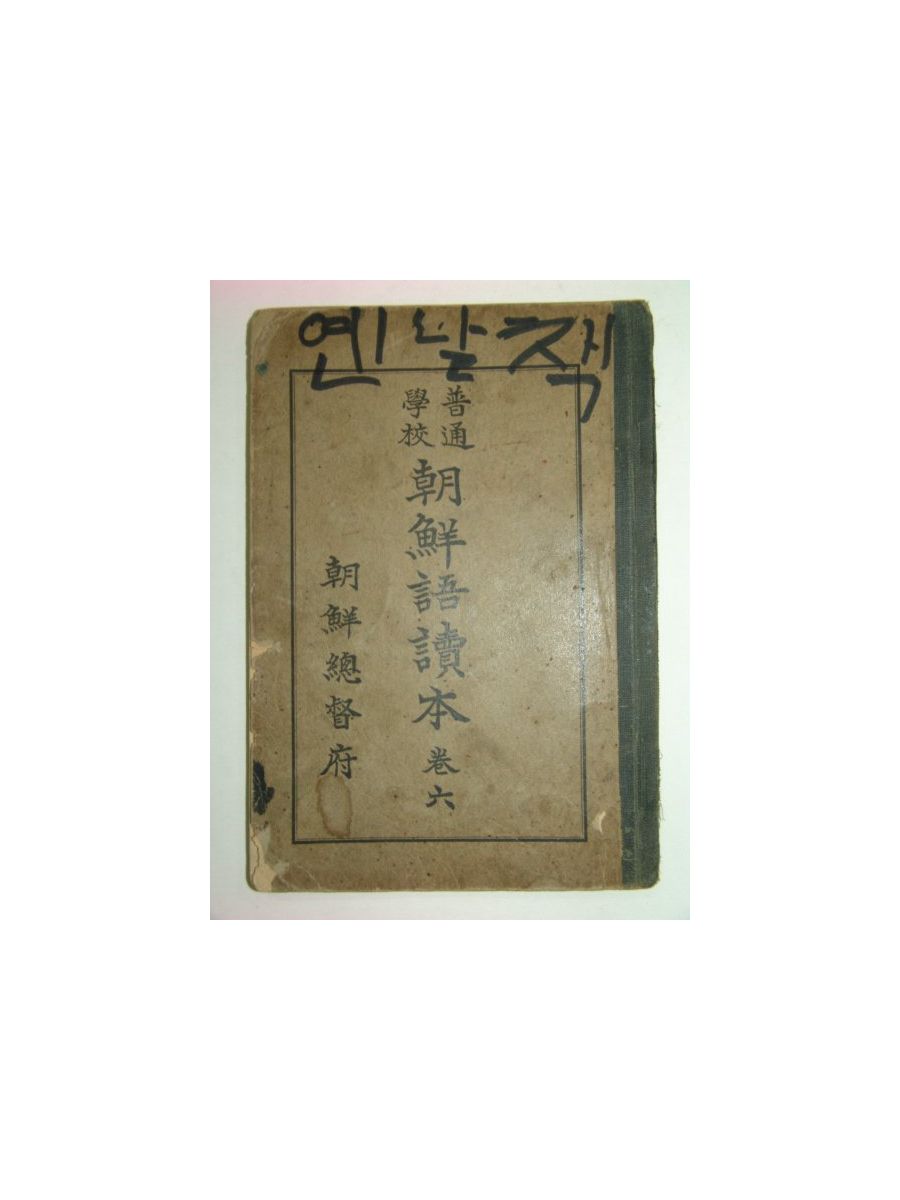 옌날잭
普通
學校
朝鮮語讀本 卷六
朝鮮總督府